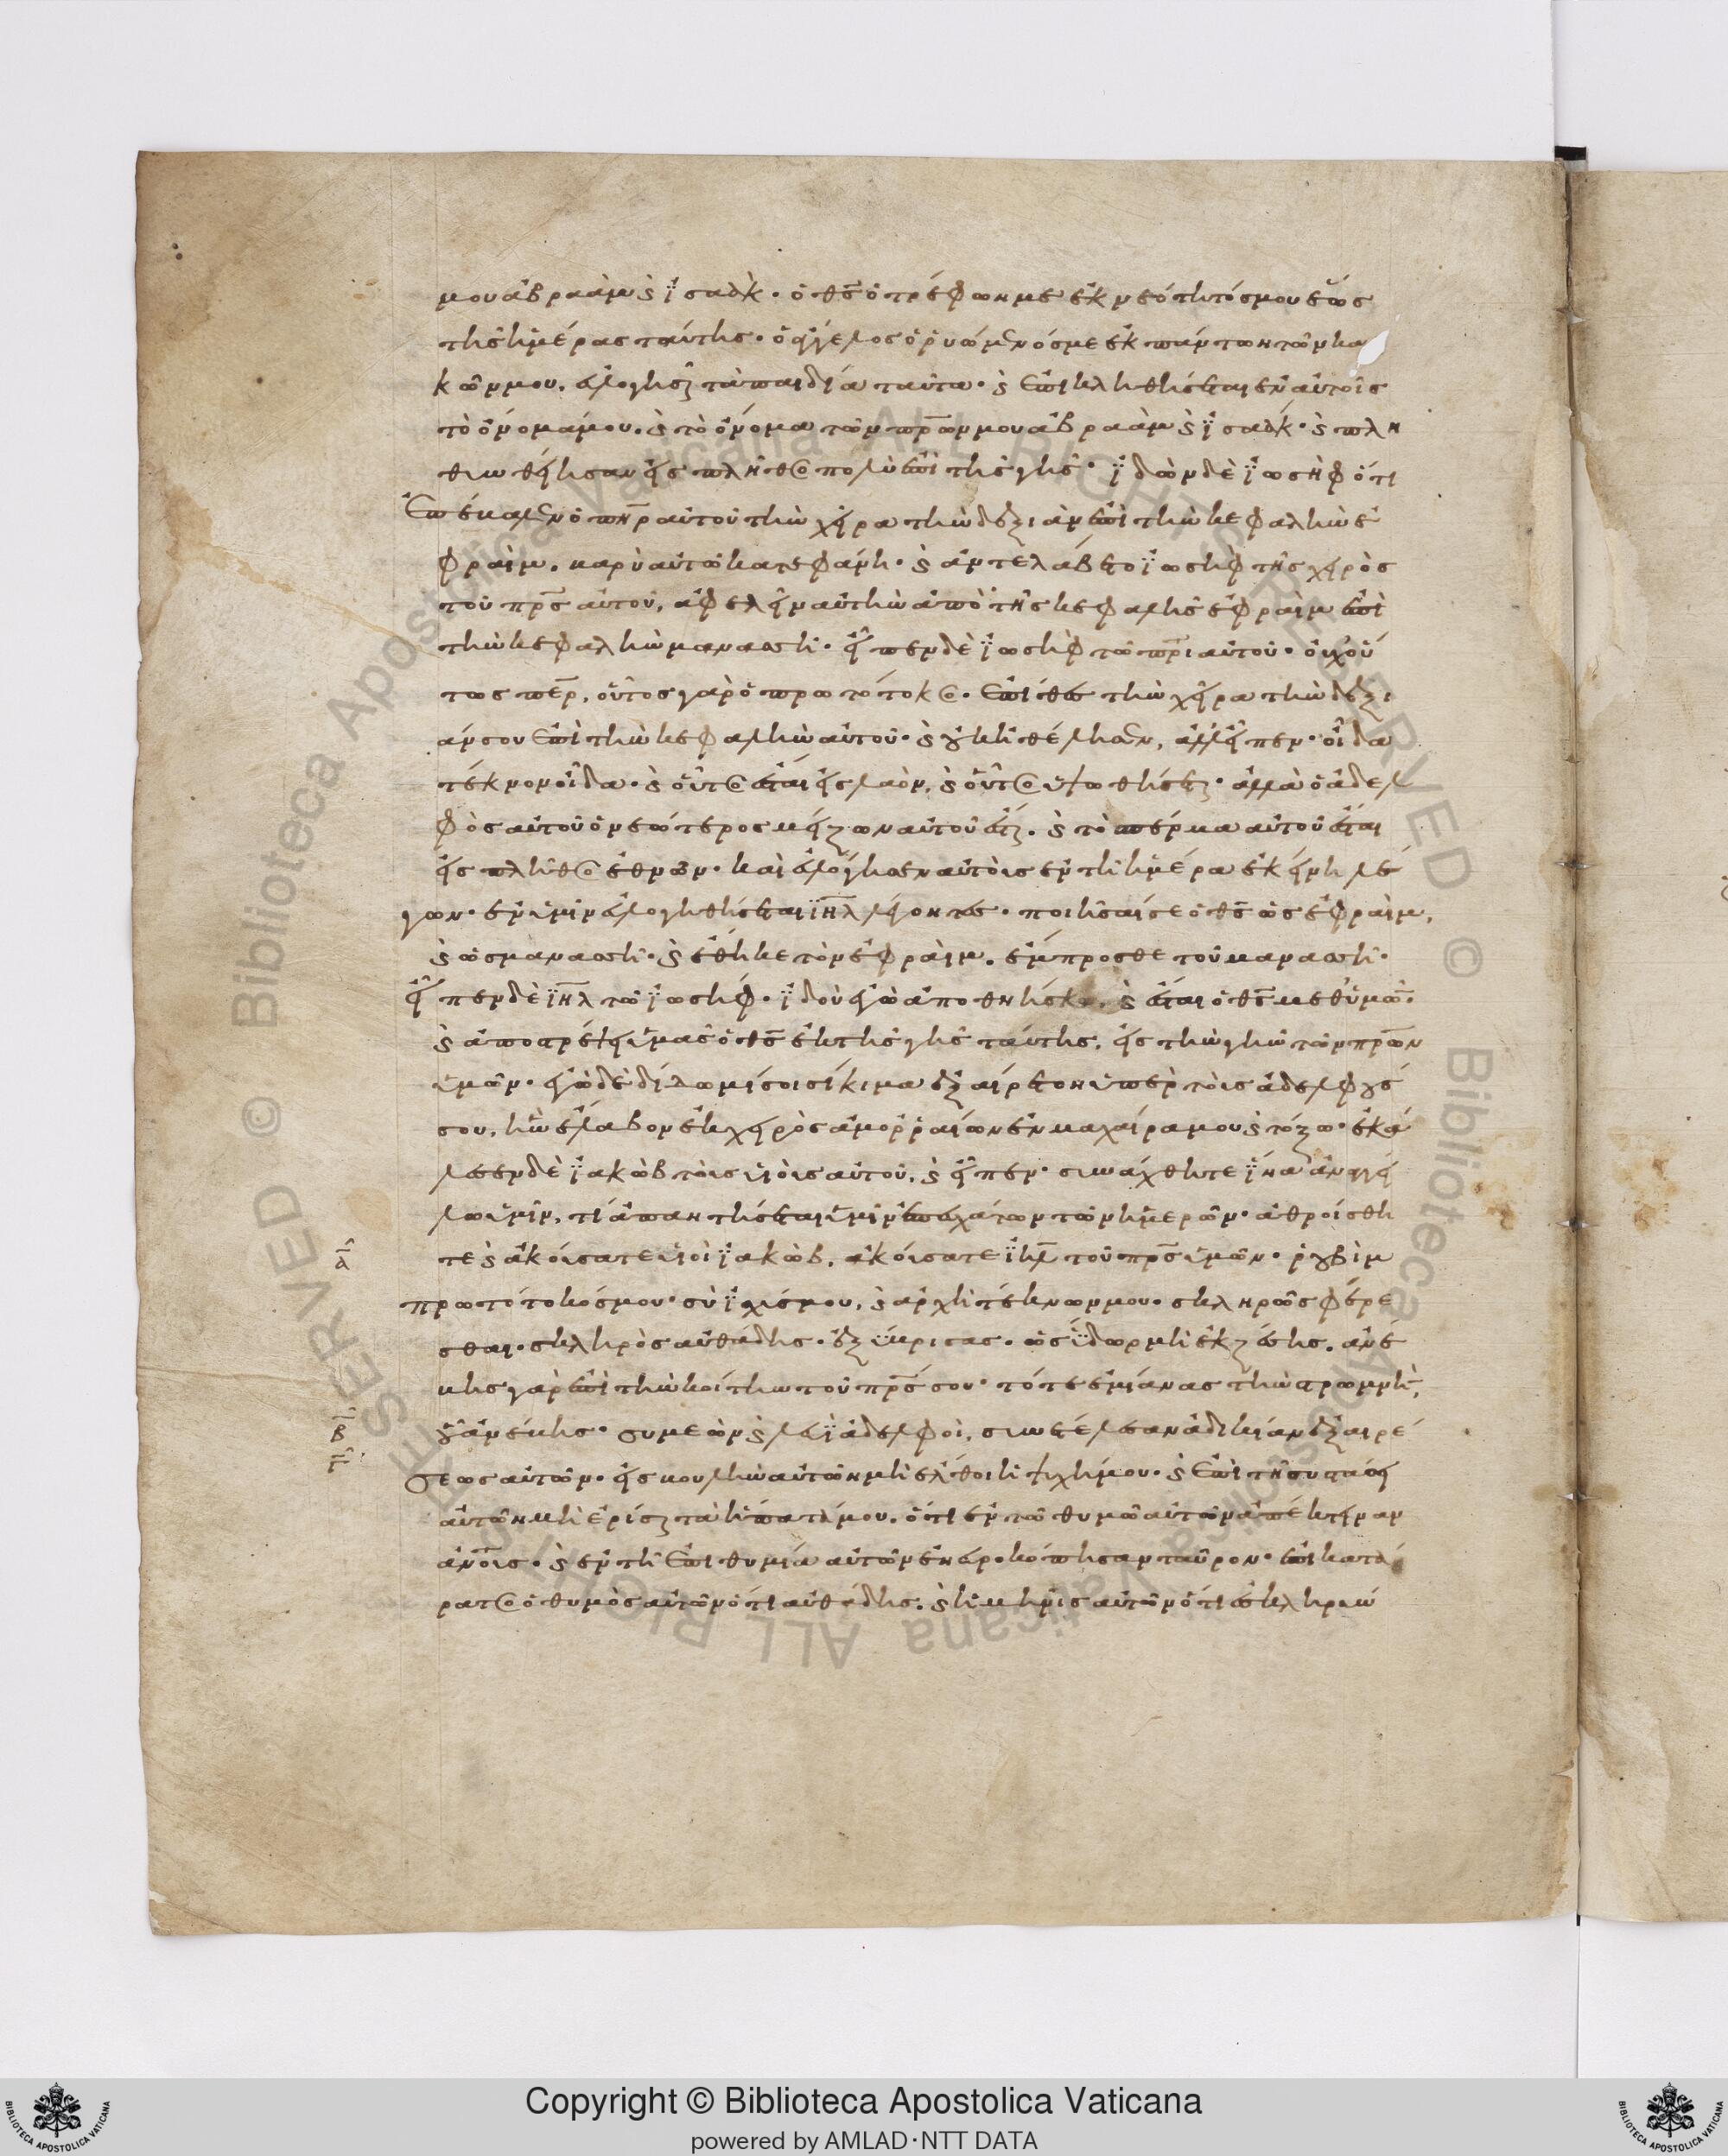 μου ἀβραὰμ καὶ ϊσαάκ· ὁ θς ὁ τρέφων με ἐκ νεότητός μου ἕως
τῆς ἡμέρας ταύτης· ὁ ἄγγελος ὁ ῥυόμενός με ἐκ πάντων τῶν κα
κῶν μου, εὐλογήσαι τὰ παιδία ταῦτα· καὶ ἐπικληθήσεται ἐν αὐτοῖς
τὸ ὄνομά μου. καὶ τὸ ὄνομα τῶν πρων μου ἀβραὰμ καὶ ϊσαάκ· καὶ πλη
θυνθείησαν εἰς πλῆθος πολὺ ἐπὶ τῆς γῆς· ϊδὼν δὲ ϊωσὴφ ὅτι
ἐπέβαλεν ὁ πηρ αὐτοῦ τὴν χεῖρα τὴν δεξιὰν ἐπὶ τὴν κεφαλὴν ἐ
φραὶμ, βαρὺ αὐτῶ κατεφάνη· καὶ ἀντελάβετο ϊωσὴφ τῆς χειρὸς
τοῦ πρς αὐτοῦ, ἀφελεῖν αὐτὴν ἀπὸ τῆς κεφαλῆς ἐφραὶμ ἐπὶ
τὴν κεφαλὴν μανασσῆ· εἶπεν δὲ ϊωσὴφ τῶ πρι αὐτοῦ· οὐχ οὕ
τως περ, οὗτος γὰρ ὁ πρωτότοκος· ἐπίθες τὴν χεῖρα τὴν δεξι
άν σου ἐπὶ τὴν κεφαλὴν αὐτοῦ· καὶ οὐκ ἠθέλησεν, ἀλλ εἶπεν· οἶδα
τέκνον οἶδα· καὶ οὗτος ἔσται εἰς λαὸν, καὶ οὗτος ὑψωθήσεται· ἀλλὰ ὁ ἀδελ
φὸς αὐτοῦ ὁ νεώτερος μείζων αὐτοῦ ἔσται. καὶ τὸ σπέρμα αὐτοῦ ἔσται
εἰς πλῆθος ἐθνῶν· καὶ εὐλόγησεν αὐτοὺς ἐν τῆ ἡμέρα ἐκείνη λέ
γων· ἐν ὑμῖν εὐλογηθήσεται ϊηλ λέγοντες· ποιήσαι σε ὁ θς ὡς ἐφραὶμ,
καὶ ὡς μανασσῆ· καὶ ἔθηκε τὸν ἐφραὶμ, ἔμπροσθε τοῦ μανασσῆ·
εἶπεν δὲ ϊηλ τῶ ϊωσήφ· ϊδοὺ ἐγὼ ἀποθνήσκω, καὶ ἔσται ὁ θς μεθ ὑμῶν·
καὶ ἀποστρέψει ὑμᾶς ὁ θς ἐκ τῆς γῆς ταύτης, εἰς τὴν γῆν τῶν πρων
ὑμῶν· ἐγὼ δὲ δίδωμί σοι σίκιμα ἐξαίρετον ὑπὲρ τοὺς ἀδελφούς
σου, ἣν ἔλαβον ἐκ χειρὸς ἀμορραίων ἐν μαχαίρα μου καὶ τόξω· ἐκά
λεσεν δὲ ϊακὼβ τοὺς υἱοὺς αὐτοῦ, καὶ εἶπεν· συνάχθητε ϊνα ἀναγγεί
λω ὑμῖν, τί ἀπαντήσεται ὑμῖν ἐπ ἐσχάτων τῶν ἡμερῶν· ἀθροίσθη
τε καὶ ἀκούσατε υἱοὶ ϊακὼβ, ἀκούσατε ϊηλ τοῦ πρς ὑμῶν· ῥουβὶμ
πρωτότοκός μου· σὺ ϊσχύς μου, καὶ ἀρχὴ τέκνων μου· σκληρῶς φέρε
σθαι· σκληρὸς αὐθάδης· ἐξύβρισας· ὡς ὕδωρ μὴ ἐκζέσης. ἀνέ
βης γὰρ ἐπὶ τὴν κοίτην τοῦ πρς σου· τότε ἐμίανας τὴν στρωμνὴ,
οὗ ἀνέβης· συμεὼν καὶ λευῒ ἀδελφοὶ, συνετέλεσαν ἀδικίαν ἐξαιρέ
σεως αὐτῶν· εἰς βουλὴν αὐτῶν μὴ ἔλθοι ἡ ψυχή μου· καὶ ἐπὶ τῆ συστάσει
αὐτῶν μὴ ἐρίσαι τὰ ἥπατά μου. ὅτι ἐν τῶ θυμῶ αὐτῶν ἀπέκτειναν
ἀνοις· καὶ ἐν τῆ ἐπιθυμία αὐτῶν ἐνευροκόπησαν ταῦρον· ἐπικατά
ρατος ὁ θυμὸς αὐτῶν ὅτι αὐθάδης. καὶ ἡ μῆνις αὐτῶν ὅτι ἐσκληρύν
α
β
γ
Copyright © Biblioteca Apostolica Vaticana
powered by AMLAD·NTT DATA